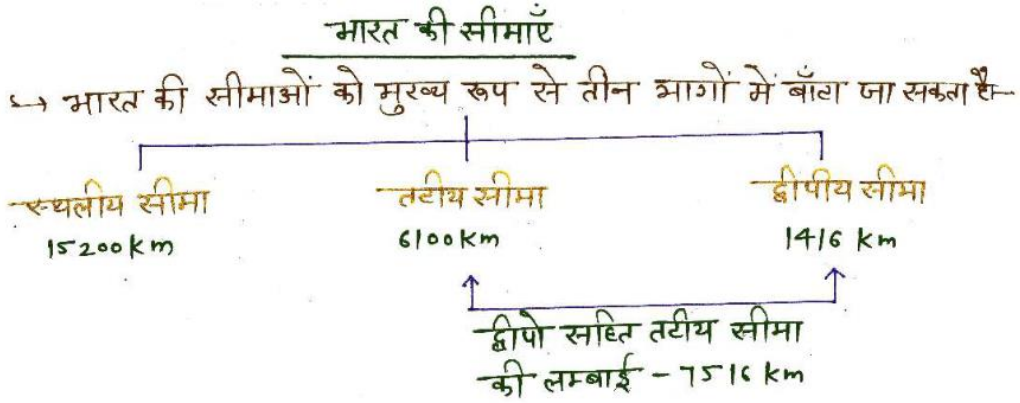 भारत की सीमाएँ
↳ भारत की सीमाओं को मुख्य रूप से तीन भागों में बाँटा जा सकता है—
स्थलीय सीमा तटीय सीमा द्वीपीय सीमा
15200 km 6100 km 1416 km
द्वीपो सहित तटीय सीमा
की लम्बाई - 7516 km